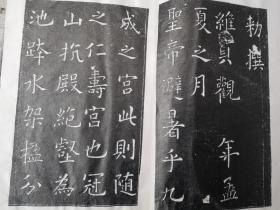 勅撰
維貞觀 年孟
夏之月
聖帝避暑乎九
成之宮此則隨
之仁壽宮也冠
山抗殿絕壑為
池跨水架楹分